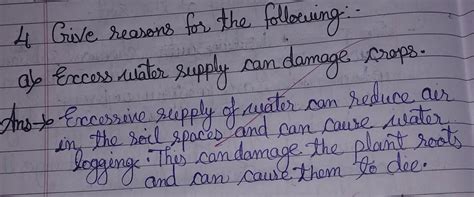 4 Give reasons for the following:-
a) Excess water supply can damage crops.
Ans→ Excessive supply of water can reduce air
in the soil spaces and can cause water
logging. This can damage the plant roots
and can cause them to dee.